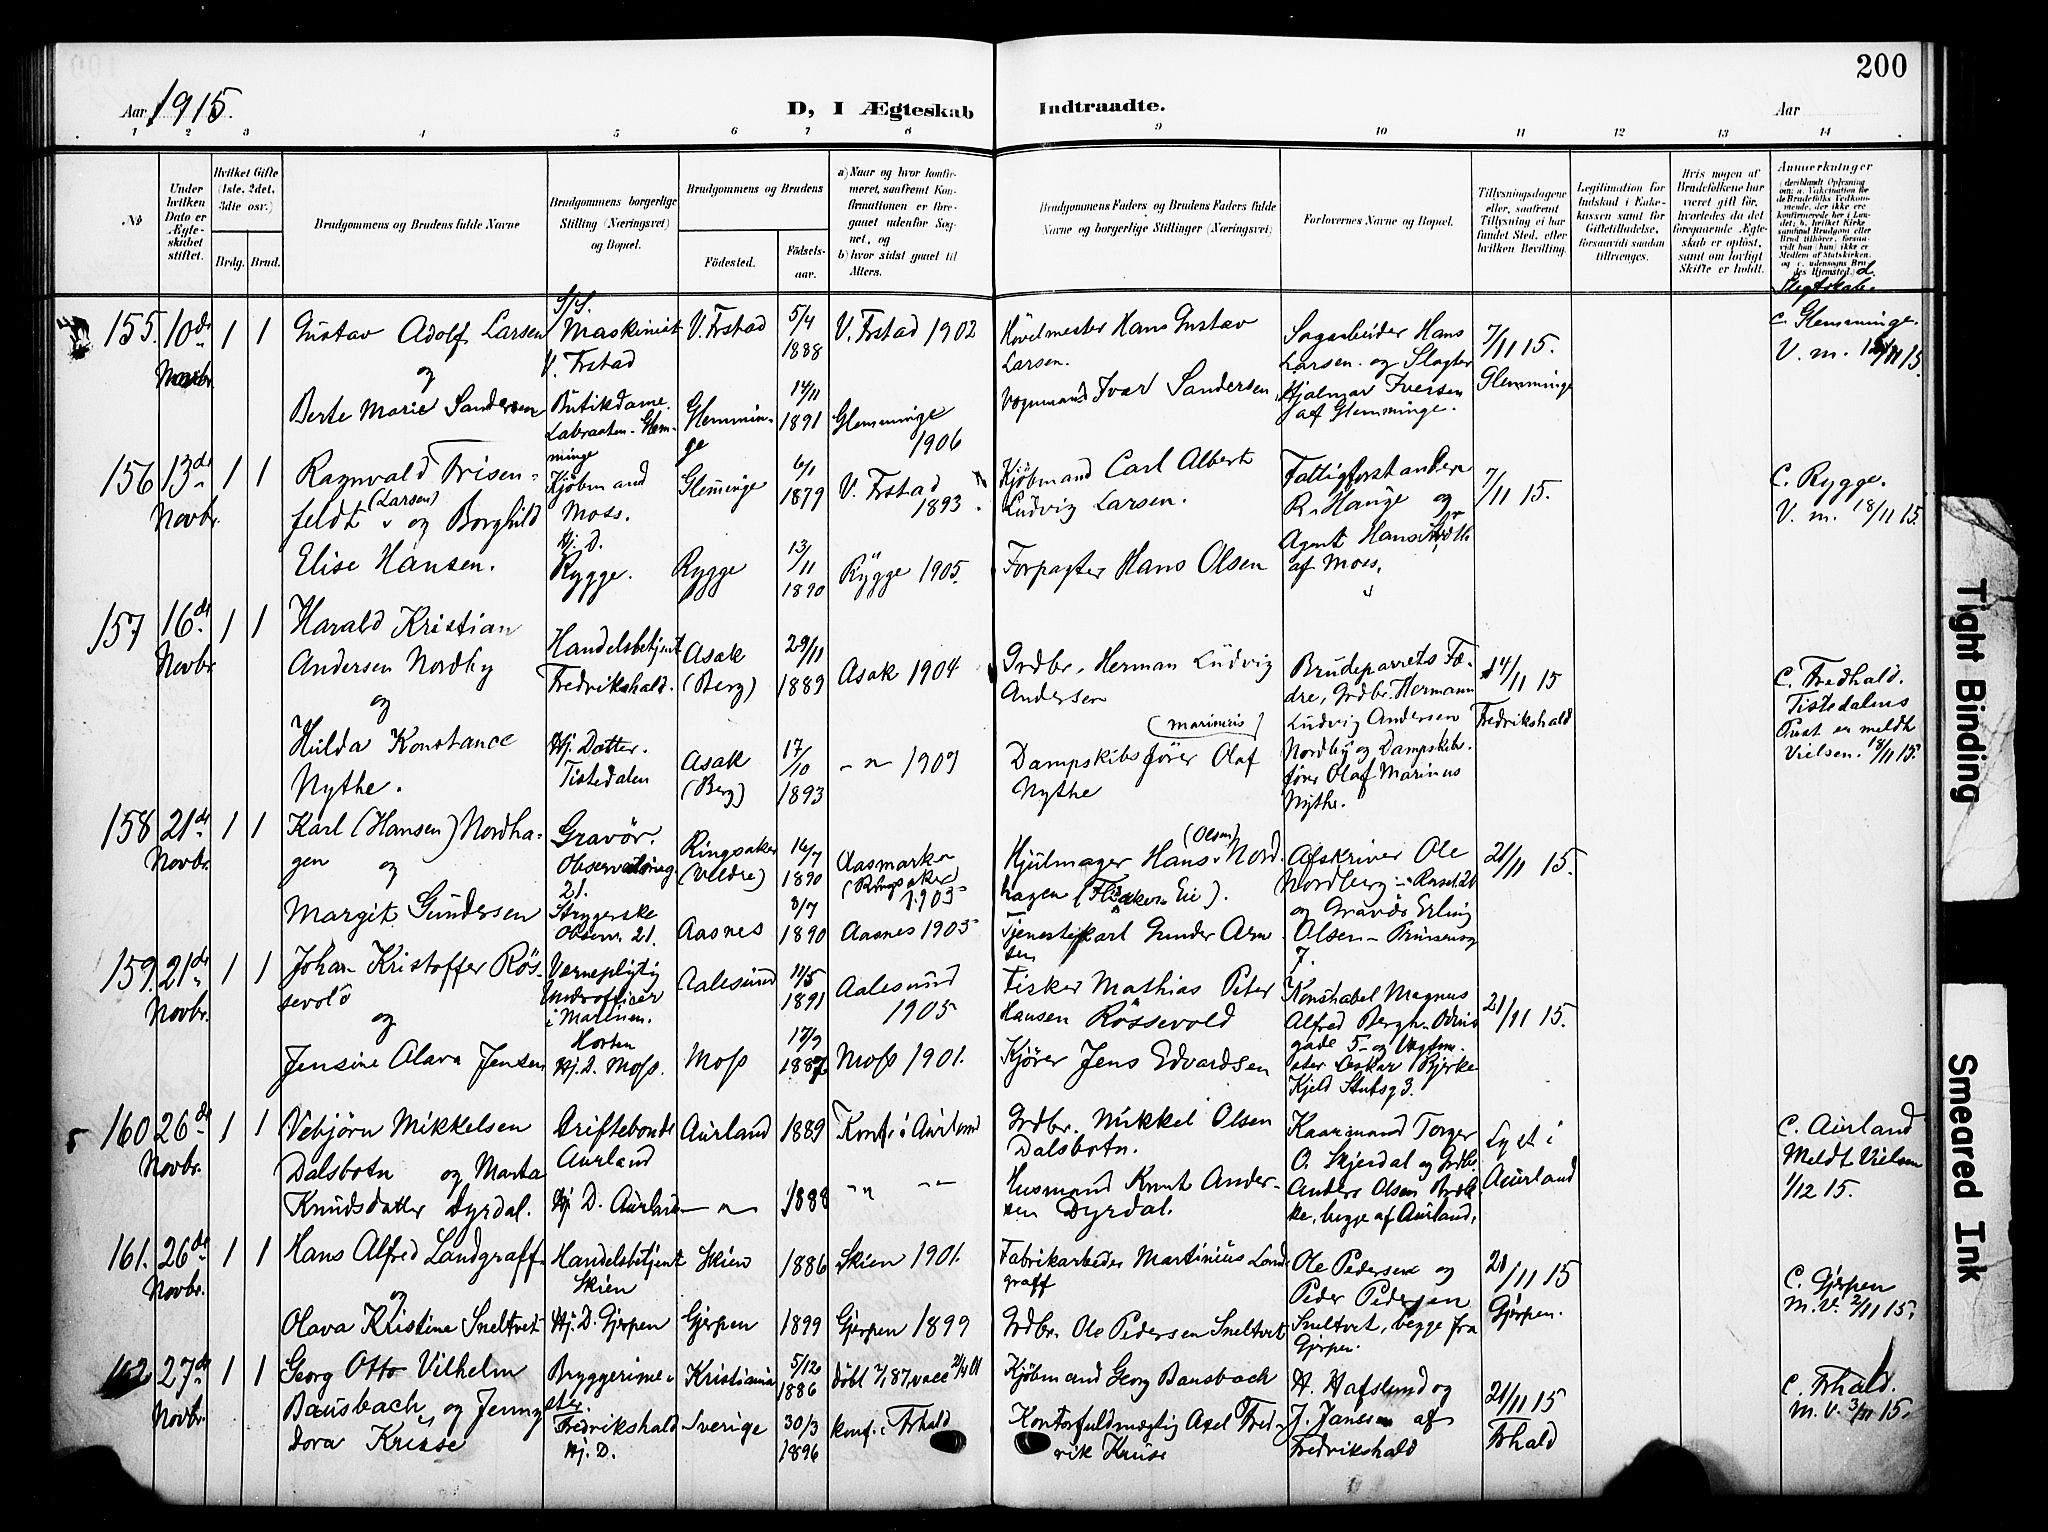 200
Aar 1915.
D, I Ægteskab Indtraadte.
Aar
1 2 3 4 5 6 7 8 9 10 11 12 13 14
No
Under hvilken Dato er Ægteskabet stiftet.
Hvilket Gifte (1ste, 2det, 3die osv.)
Brdg. Brud.
Brudgommens og Brudens fulde Navne
Brudgommens borgerlige Stilling (Næringsvei) og Bopæl.
Brudgommens og Brudens
Fødested.
Fødselsaar.
a) Naar og hvor konfirmeret, saafremt Konfirmationen er foregaaet udenfor Sognet, og
b) hvor sidst gaaet til Alters.
Brudgommens Faders og Brudens Faders fulde Navne og borgerlige Stillinger (Næringsvei)
Forlovernes Navne og Bopæl.
Tillysningsdagene eller, saafremt Tillysning ei har fundet Sted, efter hvilken Bevilling.
Legitimation for Indskud i Enkekassen samt for Giftetilladelse, forsaavidt saadan tiltrænges.
Hvis nogen af Brudefolkene har været gift før, hvorledes da det foregaaende Ægteskab er opløst, samt om lovligt Skifte er holdt.
Anmerkninger
d. Slegtskab.
155. 10de Novbr. 1 1
Gustav Adolf Larsen
og
Berte Marie Sandersen
S/S. Maskinist
V. Frstad
Butikdame.
Labraaten - Glemminge
V. Frstad 5/4 1888 V. Frstad 1902
Glemminge 14/11 1891 Glemminge 1906
Høvelmester Hans Gustav
Larsen.
Vognmand Ivar Sandersen
Sagarbeider Hans
Larsen og Slagter
Hjalmar Iversen
af Glemminge.
7/11 15.
Glemminge
C. Glemminge.
V. m. 11 15.
156 13de Novbr. 1 1
Ragnvald Frisen-
feldt (Larsen) og Borghild
Elise Hansen.
Kjøbmand
Moss.
Hj. D.
Rygge.
Glemminge 6/1 1879 V. Frstad 1893.
Rygge 13/11 1890 Rygge 1905.
Kjøbmand Carl Albert
Ludvig Larsen.
Forpagter Hans Olsen
Fattigforstander
R. Hauge og
Agent Hans
af Moss.
7/11 15.
C. Rygge.
V. m. 18/11 15.
157 16de Novbr. 1 1
Harald Kristian
Andersen Nordby
og
Hilda Konstance
Nythe.
Handelsbetjent
Fredrikshald.
Hj. Datter.
Tistedalen
Asak (Berg) 29/11 1889 Asak 1904
Asak (Berg) 17/10 1893 - " - 1909
Grdbr. Herman Ludvig
Andersen
(Marinius)
Dampskibsfører Olaf
Nythe
Brudeparrets Fæ-
dre, Grdbr. Hermann
Ludvig Andersen
Nordby og Dampskibs-
fører Olaf Marinus
Nythe.
14/11 15
Fredrikshald
C. Fredhald.
Tistedalens
Prest er meldt
Vielsen. 18/11 15.
158 21de Novbr. 1 1
Karl (Hansen) Nordha-
gen og
Margit Gundersen
Gravør.
Observatoriegt.
21.
Strygerske
Observ. 21.
Ringsaker (Veldre) 16/7 1890 Aasmarka (Ringsaker) 1905
Aasnes 3/7 1890 Aasnes 1905
Hjulmager Hans (Olsen) Nord-
hagen
Tjenestekarl Gunder Arn
tsen
Afskriver Ole
Nordberg
og Gravør Erling
Olsen - Prinsensg
7.
21/11 15.
159. 21de Novbr. 1 1
Johan Kristoffer Røs-
sevold
og
Jensine Olava Jensen
Vernepligtig
Underofficer
i Marinen.
Horten
Hj. D. Moss.
Aalesund 11/5 1891 Aalesund 1905
Moss 17/9 1887 Moss 1901.
Fisker Mathias Peter
Hansen Røssevold
Kjører Jens Edvardsen
Konstabel Magnus
Alfred Bergh. Odins
gade 5 og
Oskar Bjerke
Kjeld Stubsg 3.
21/11 15.
160 26de Novbr. 1 1
Vebjørn Mikkelsen
Dalsbotn og Marta
Knudsdatter Dyrdal.
Driftebonde
Aurland
Hj. D. Aurland
Aurland 1889 Konf. i Aurland
- " - 1888 - " - - " -
Grdbr. Mikkel Olsen
Dalsbotn.
Husmand Knut Ander-
sen Dyrdal.
Kaarmand Torger
O. Skjerdal og Grdbr.
Anders Olsen Brek-
ke, begge af Aurland.
Lyst i
Aurland
C. Aurland
Meldt Vielsen
1/12 15.
161. 26de Novbr. 1 1
Hans Alfred Landgraff
og
Olava Kristine Sneltvet
Handelsbetjent
Skien
Hj. D. Gjerpen
Skien 1886 Skien 1901.
Gjerpen 1899 Gjerpen 1899
Fabrikarbeider Martinius Land
graff
Grdbr. Ole Pedersen Sneltvet
Ole Pedersen og
Peder Pedersen
Sneltvet, begge fra
Gjerpen.
21/11 15
Gjerpen.
C. Gjerpen
M. V. 2/11 15.
162 27de Novbr. 1 1
Georg Otto Vilhelm
Bausbach og Jenny
dora Kruse
Bryggerime-
ster.
Fredrikshald
Hj. D.
Kristiania 5/12 1886 døbt 7/1 87, vacc 21/4 01
Sverige 30/3 1896 konf. i Frhald
Kjøbmand Georg Bausbach
Kontorfuldmægtig Axel Fred-
rik Kruse
H. Hafslund og
J. Jansen af
Fredrikshald
21/11 15
Frhald
C. Frhald.
M. V. 3/11 15.
Tight Binding
Smeared Ink